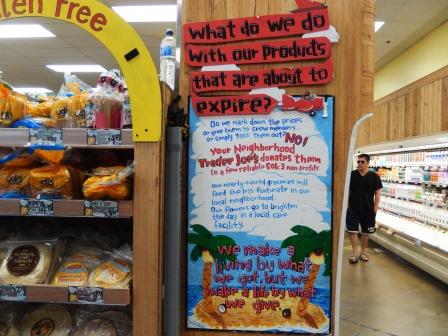 ten free
What do we do
With our products
that are about to
expire?
Do we mark down the prices
or give them to crew members
or simply toss them out?
NO!
Your Neighborhood
Trader Joe's donates them
to a few reliable 501.3 non-profits
Our nearly expired groceries will
feed the less-fortunate in our
local neighborhood.
Our flowers go to brighten
the day at a local care
facility.
We make a
living by what
we get, but we
make a life by what
we give.